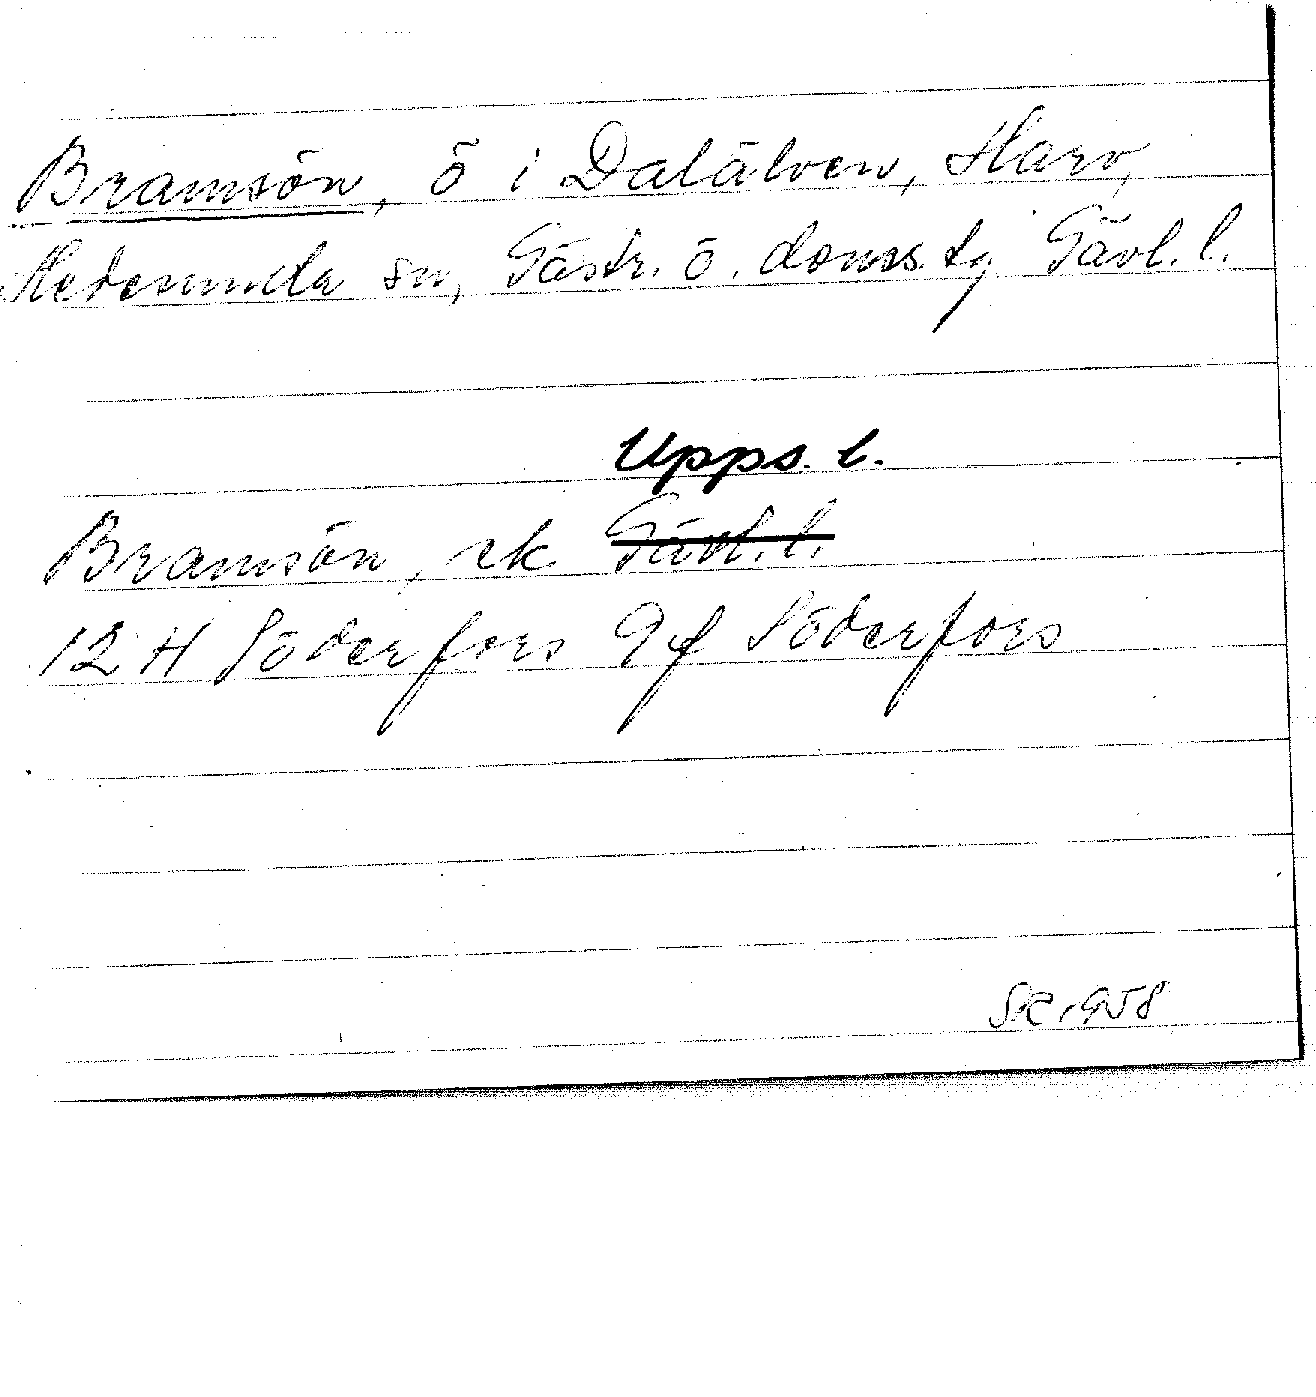 Bramsön, ö i Dalälven, Harv,
Hedesunda sn, Gästr. ö. doms. tg Gävl. l.
Upps. l.
Bramsön, ek. Gävl. l.
12 H Söderfors 9 f Söderfors
SK 1958